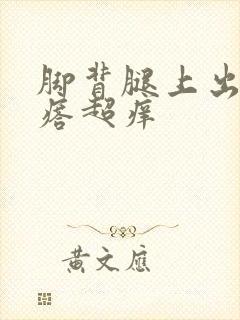 脚背腿上出
痞超痒
黄文应